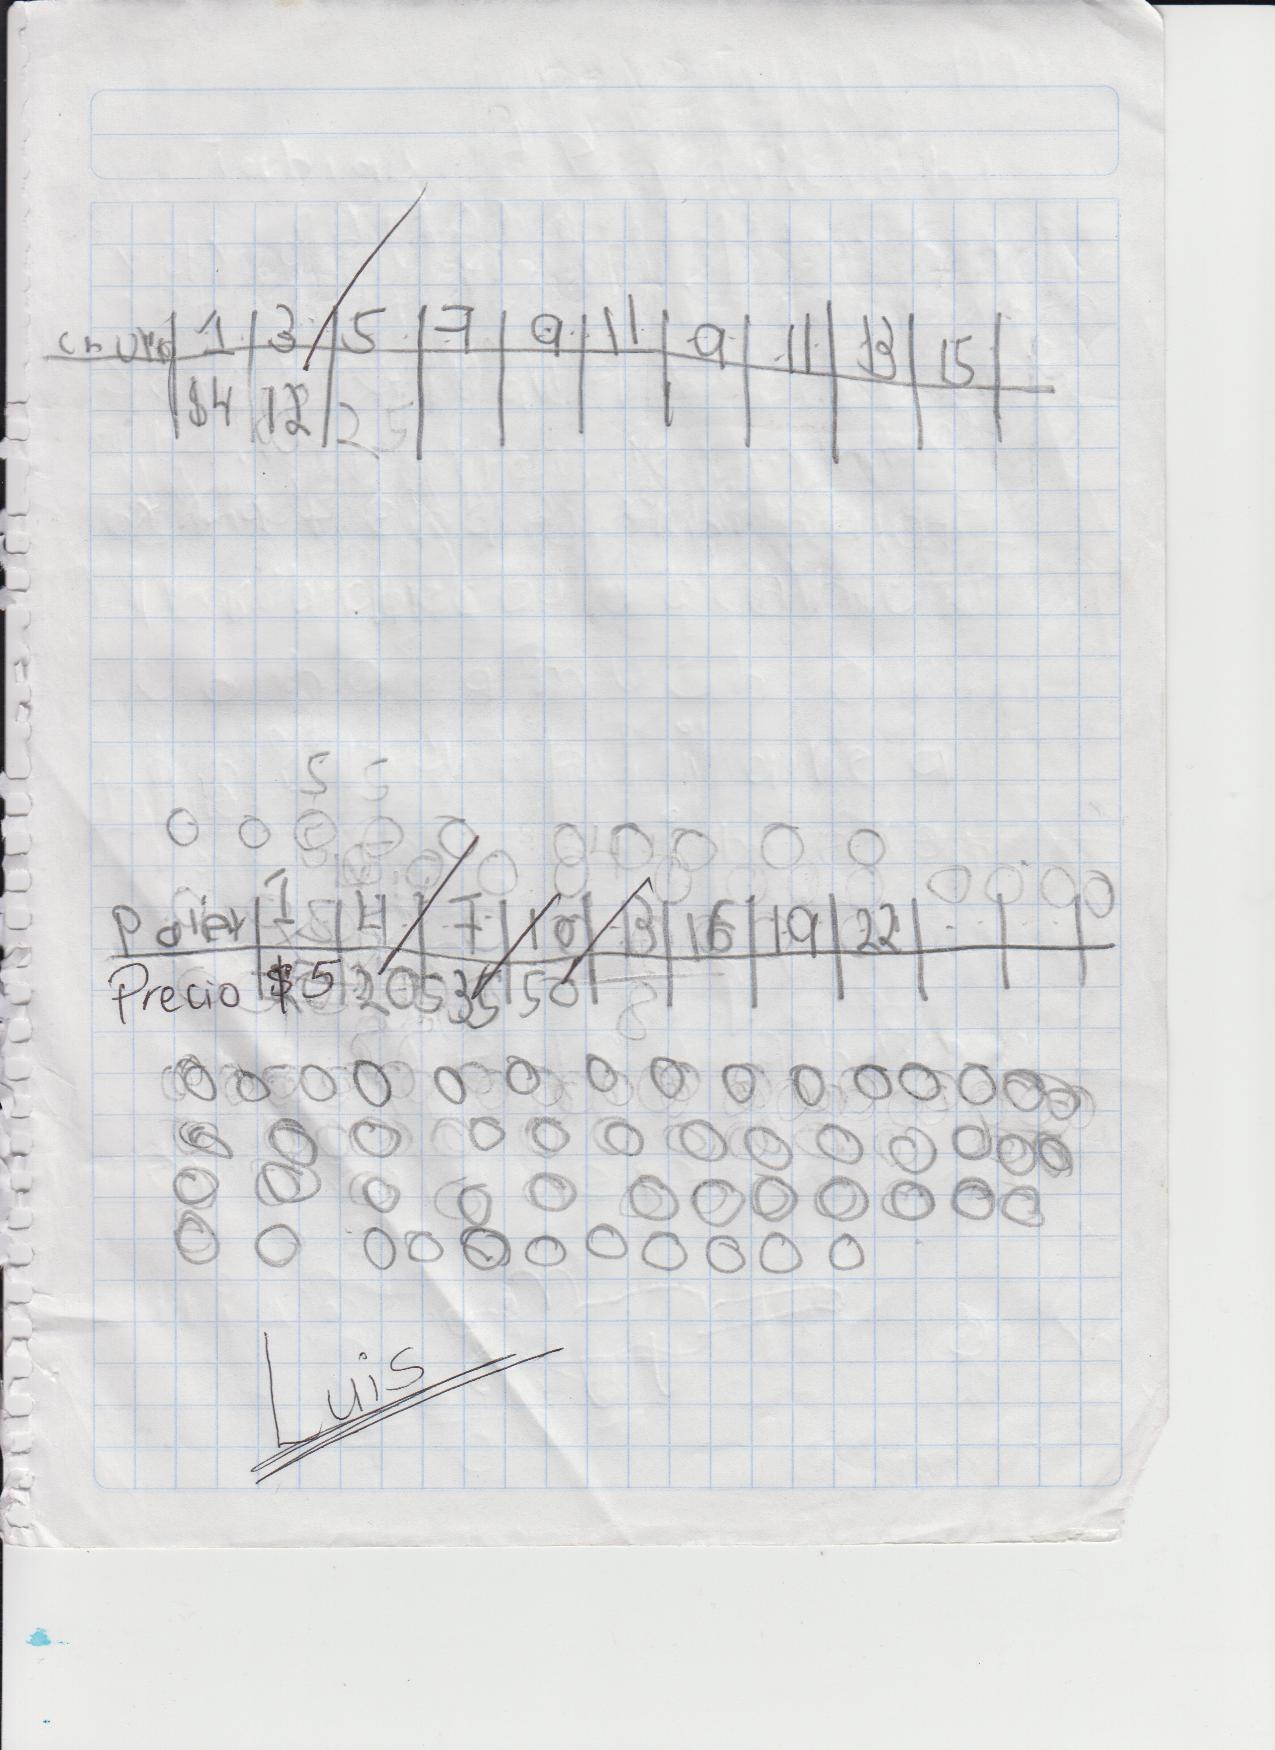 1 3 5 7 9 11 9 11 13 15
$4 12 25
5 5
1 4 7 10 13 16 19 22
Precio $5 20 35 50
8
Luis